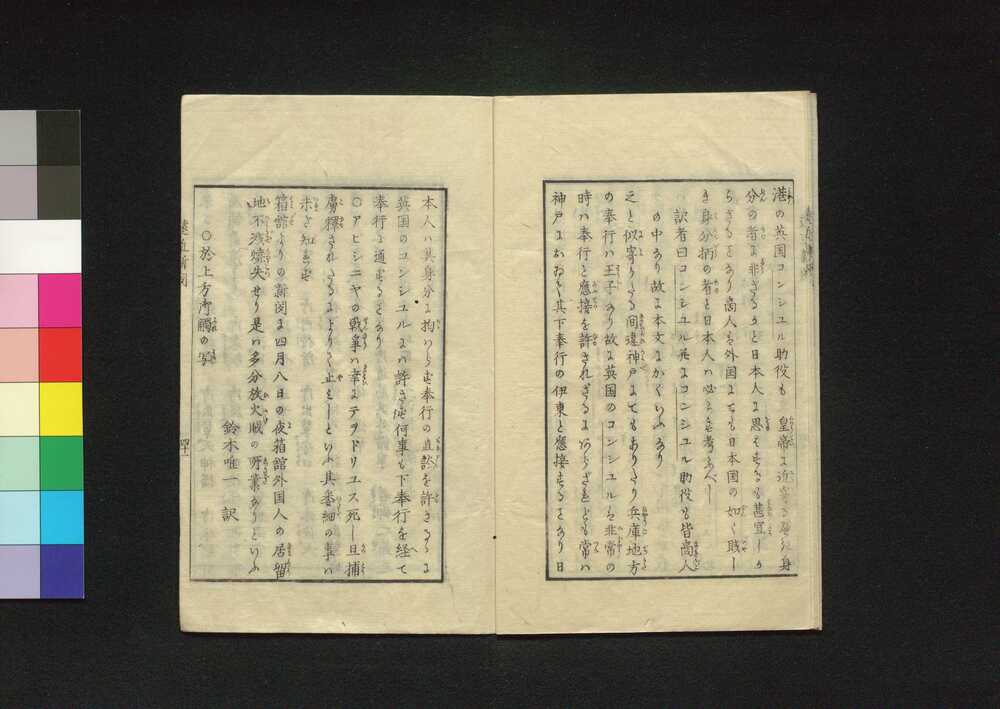 港の英国コンシユル助役も　皇帝に近寄き程の身
分の者に非ざることと日本人に思はするも甚宜しか
らざることなり商人も外国にても日本国の如く賎し
き身分柄の者と日本人は必らずも考ふべし
訳者曰コンシユル并にコンシユル助役も皆商人
の中なり故に本文にかくいふなり
之と似寄りたる間違神戸にてもありたり兵庫地方
の奉行ハ王子なり故に英国のコンシユルも非常の
時ハ奉行と應接を許されざるにあらざれども常ハ
神戸におゐて其下奉行の伊東と應接することなり日
本人ハ其身分に拘ハらず奉行の直談を許さるゝに
英国のコンシユルにハ許さず何事も下奉行を経て
奉行に通ずることなり
○アビシニヤの戦争ハ幸にテヲドリユス死し且捕
虜釋されたるによりて止ミしといふ其委細の事ハ
未だ知らず
箱館よりの新聞に四月八日の夜箱館外国人の居留
地不残焼失せり是ハ多分放火賊の所業なりといふ
鈴木唯一訳
○於上方御觸の写
遠近新聞